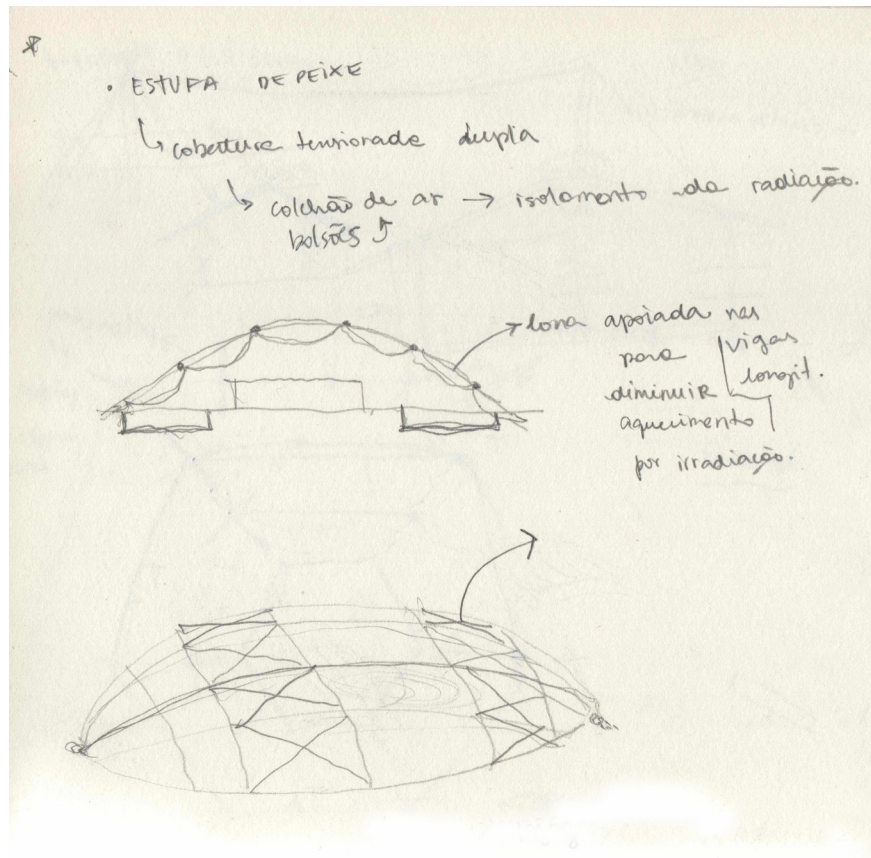 • ESTUFA DE PEIXE
↳ cobertura tensionada dupla
↳ colchão de ar → isolamento da radiação.
bolsões
lona apoiada nas
para vigas
diminuir longit.
aquecimento
por irradiação.